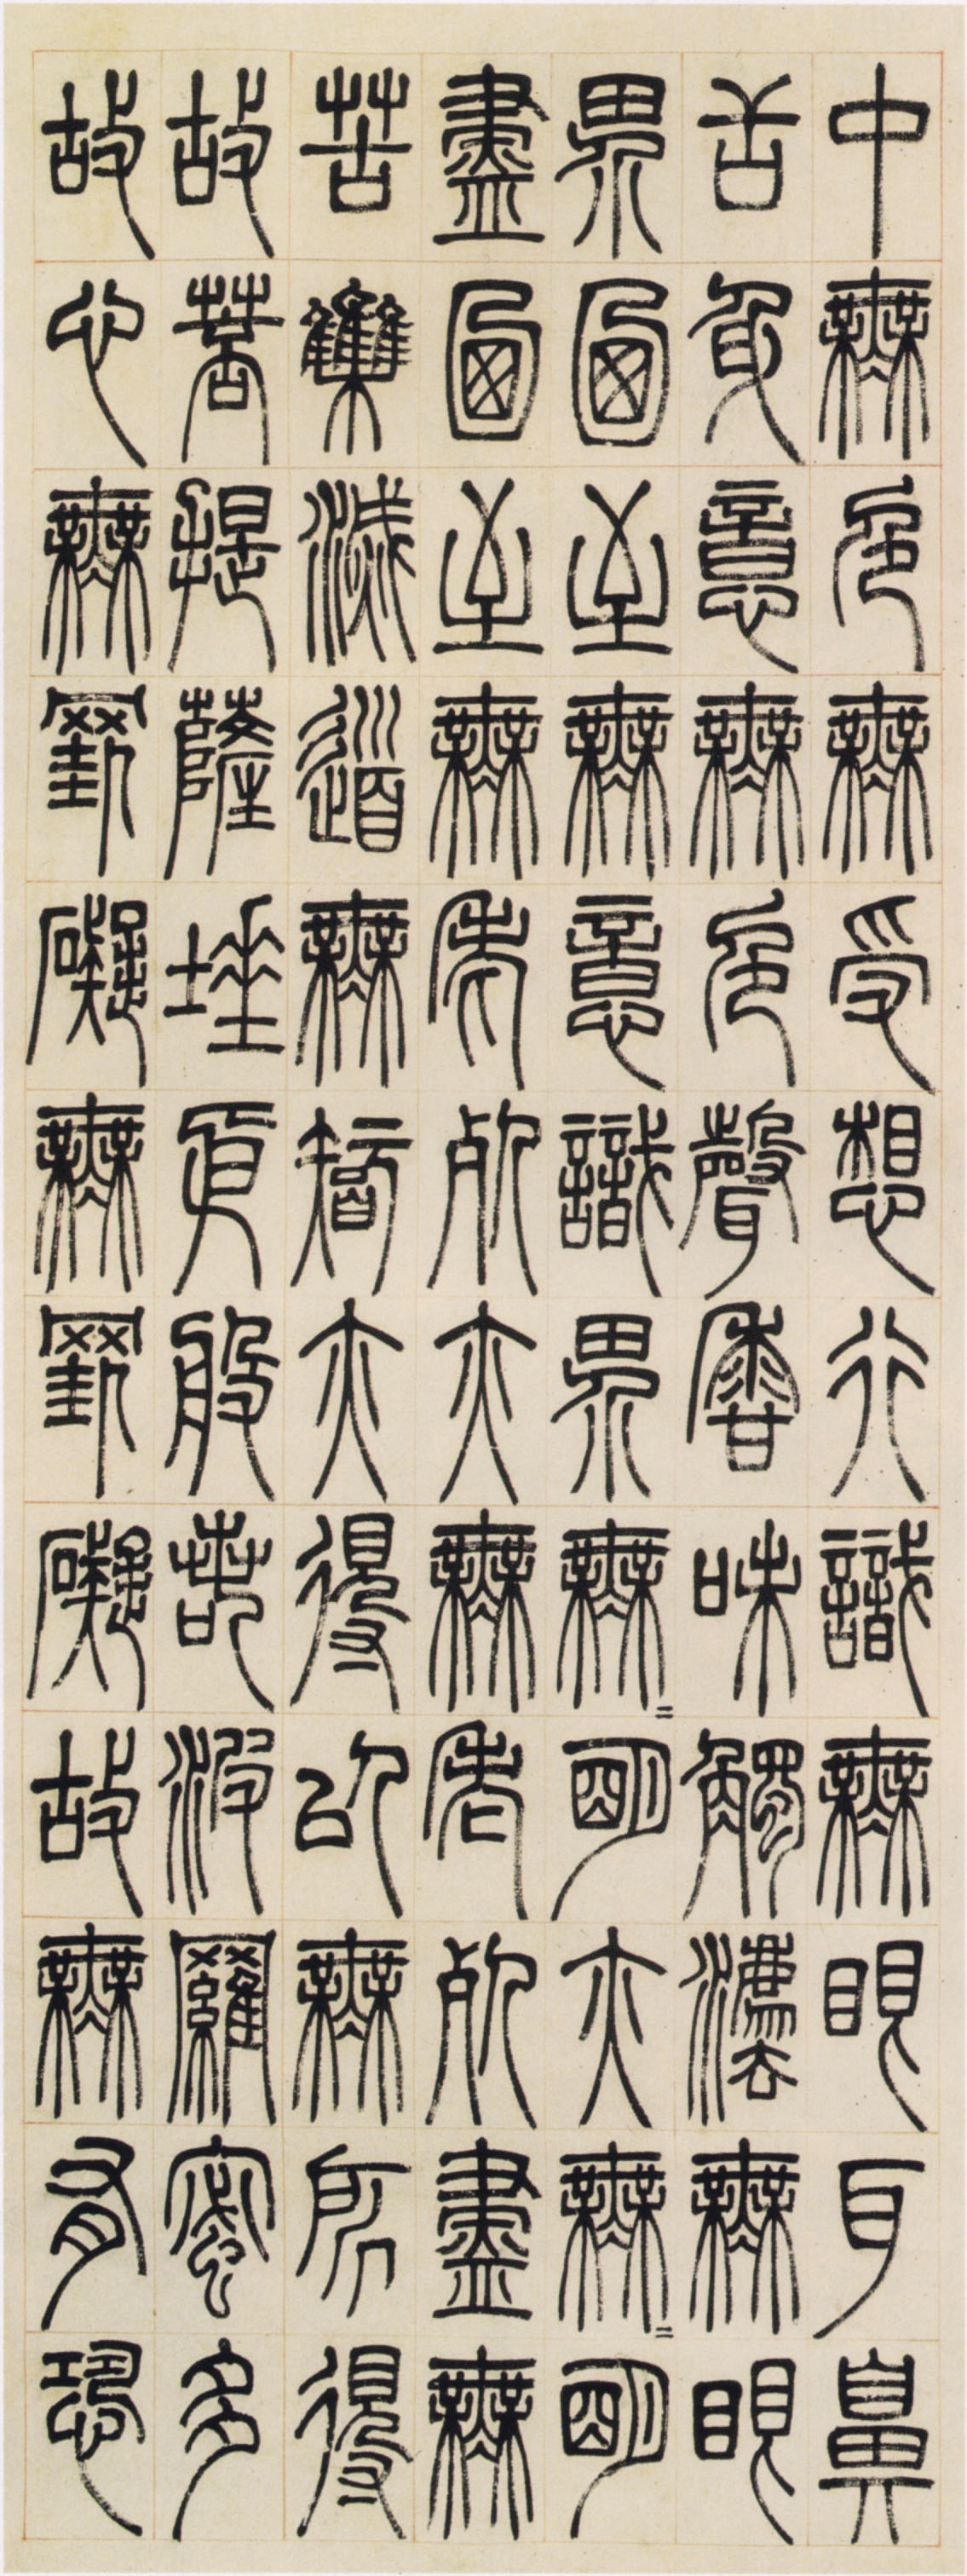 中無色無受想行識無眼耳鼻
舌身意無色聲香味觸法無眼
界迺至無意識界無=明亦無=明
盡迺至無老死亦無老死盡無
苦集滅道無智亦得以無所得
故菩提薩埵依般若波羅蜜多
故心無罣礙無罣礙故無有恐